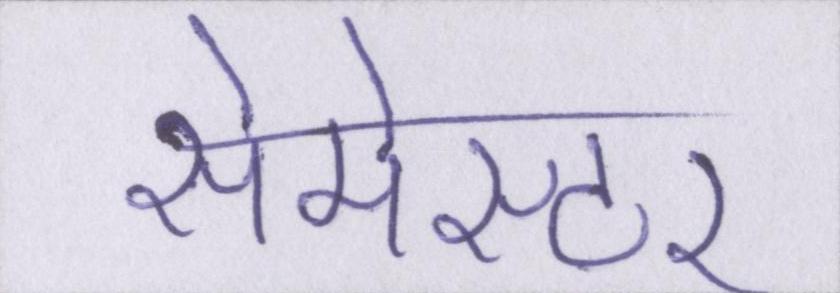 सेमेस्टर